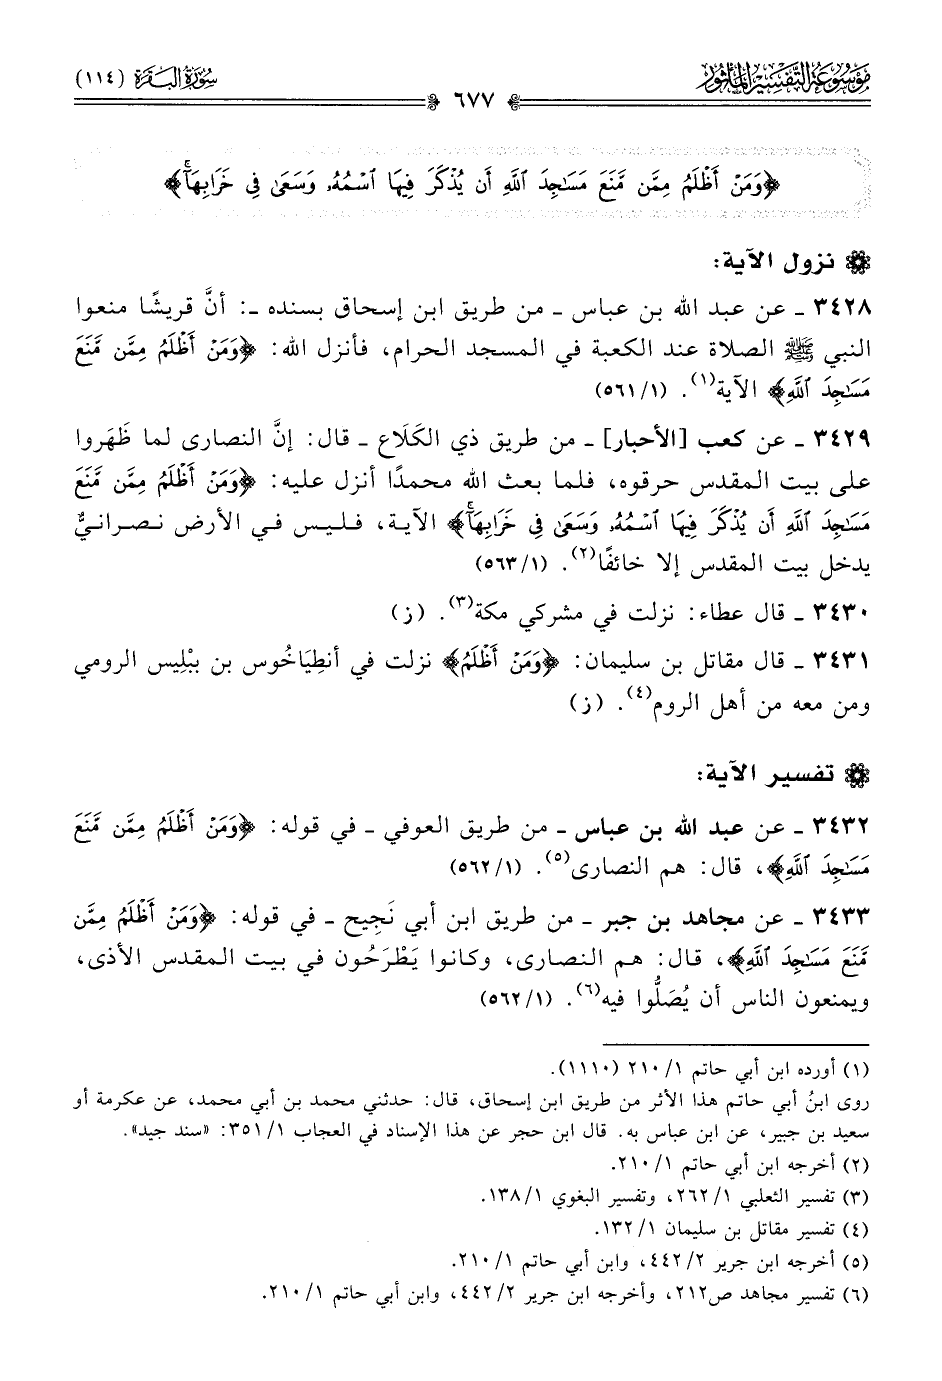 موسوعة التفسير المأثور
سورة البقرة (١١٤)
٦٧٧
﴿وَمَنْ أَظْلَمُ مِمَّن مَّنَعَ مَسَـٰجِدَ ٱللَّهِ أَن يُذْكَرَ فِيهَا ٱسْمُهُۥ وَسَعَىٰ فِى خَرَابِهَآۚ﴾
نزول الآية:
٣٤٢٨ ـ عن عبد الله بن عباس ـ من طريق ابن إسحاق بسنده ـ: أنَّ قريشًا منعوا
النبي ﷺ الصلاة عند الكعبة في المسجد الحرام، فأنزل الله: ﴿وَمَنْ أَظْلَمُ مِمَّن مَّنَعَ
مَسَـٰجِدَ ٱللَّهِ﴾ الآية(١). (١/٥٦١)
٣٤٢٩ ـ عن كعب [الأحبار] ـ من طريق ذي الكَلَاع ـ قال: إنَّ النصارى لما ظَهَروا
على بيت المقدس حرقوه، فلما بعث الله محمدًا أنزل عليه: ﴿وَمَنْ أَظْلَمُ مِمَّن مَّنَعَ
مَسَـٰجِدَ ٱللَّهِ أَن يُذْكَرَ فِيهَا ٱسْمُهُۥ وَسَعَىٰ فِى خَرَابِهَآۚ﴾ الآية، فليس في الأرض نصرانيٌّ
يدخل بيت المقدس إلا خائفًا(٢). (١/٥٦٣)
٣٤٣٠ ـ قال عطاء: نزلت في مشركي مكة(٣). (ز)
٣٤٣١ ـ قال مقاتل بن سليمان: ﴿وَمَنْ أَظْلَمُ﴾ نزلت في أنطِيَاخُوس بن ببْلِيس الرومي
ومن معه من أهل الروم(٤). (ز)
تفسير الآية:
٣٤٣٢ ـ عن عبد الله بن عباس ـ من طريق العوفي ـ في قوله: ﴿وَمَنْ أَظْلَمُ مِمَّن مَّنَعَ
مَسَـٰجِدَ ٱللَّهِ﴾، قال: هم النصارى(٥). (١/٥٦٢)
٣٤٣٣ ـ عن مجاهد بن جبر ـ من طريق ابن أبي نَجيح ـ في قوله: ﴿وَمَنْ أَظْلَمُ مِمَّن
مَّنَعَ مَسَـٰجِدَ ٱللَّهِ﴾، قال: هم النصارى، وكانوا يَطْرَحُون في بيت المقدس الأذى،
ويمنعون الناس أن يُصَلُّوا فيه(٦). (١/٥٦٢)
(١) أورده ابن أبي حاتم ١/٢١٠ (١١١٠).
روى ابنُ أبي حاتم هذا الأثر من طريق ابن إسحاق، قال: حدثني محمد بن أبي محمد، عن عكرمة أو
سعيد بن جبير، عن ابن عباس به. قال ابن حجر عن هذا الإسناد في العجاب ١/٣٥١: «سند جيد».
(٢) أخرجه ابن أبي حاتم ١/٢١٠.
(٣) تفسير الثعلبي ١/٢٦٢، وتفسير البغوي ١/١٣٨.
(٤) تفسير مقاتل بن سليمان ١/١٣٢.
(٥) أخرجه ابن جرير ٢/٤٤٢، وابن أبي حاتم ١/٢١٠.
(٦) تفسير مجاهد ص٢١٢، وأخرجه ابن جرير ٢/٤٤٢، وابن أبي حاتم ١/٢١٠.